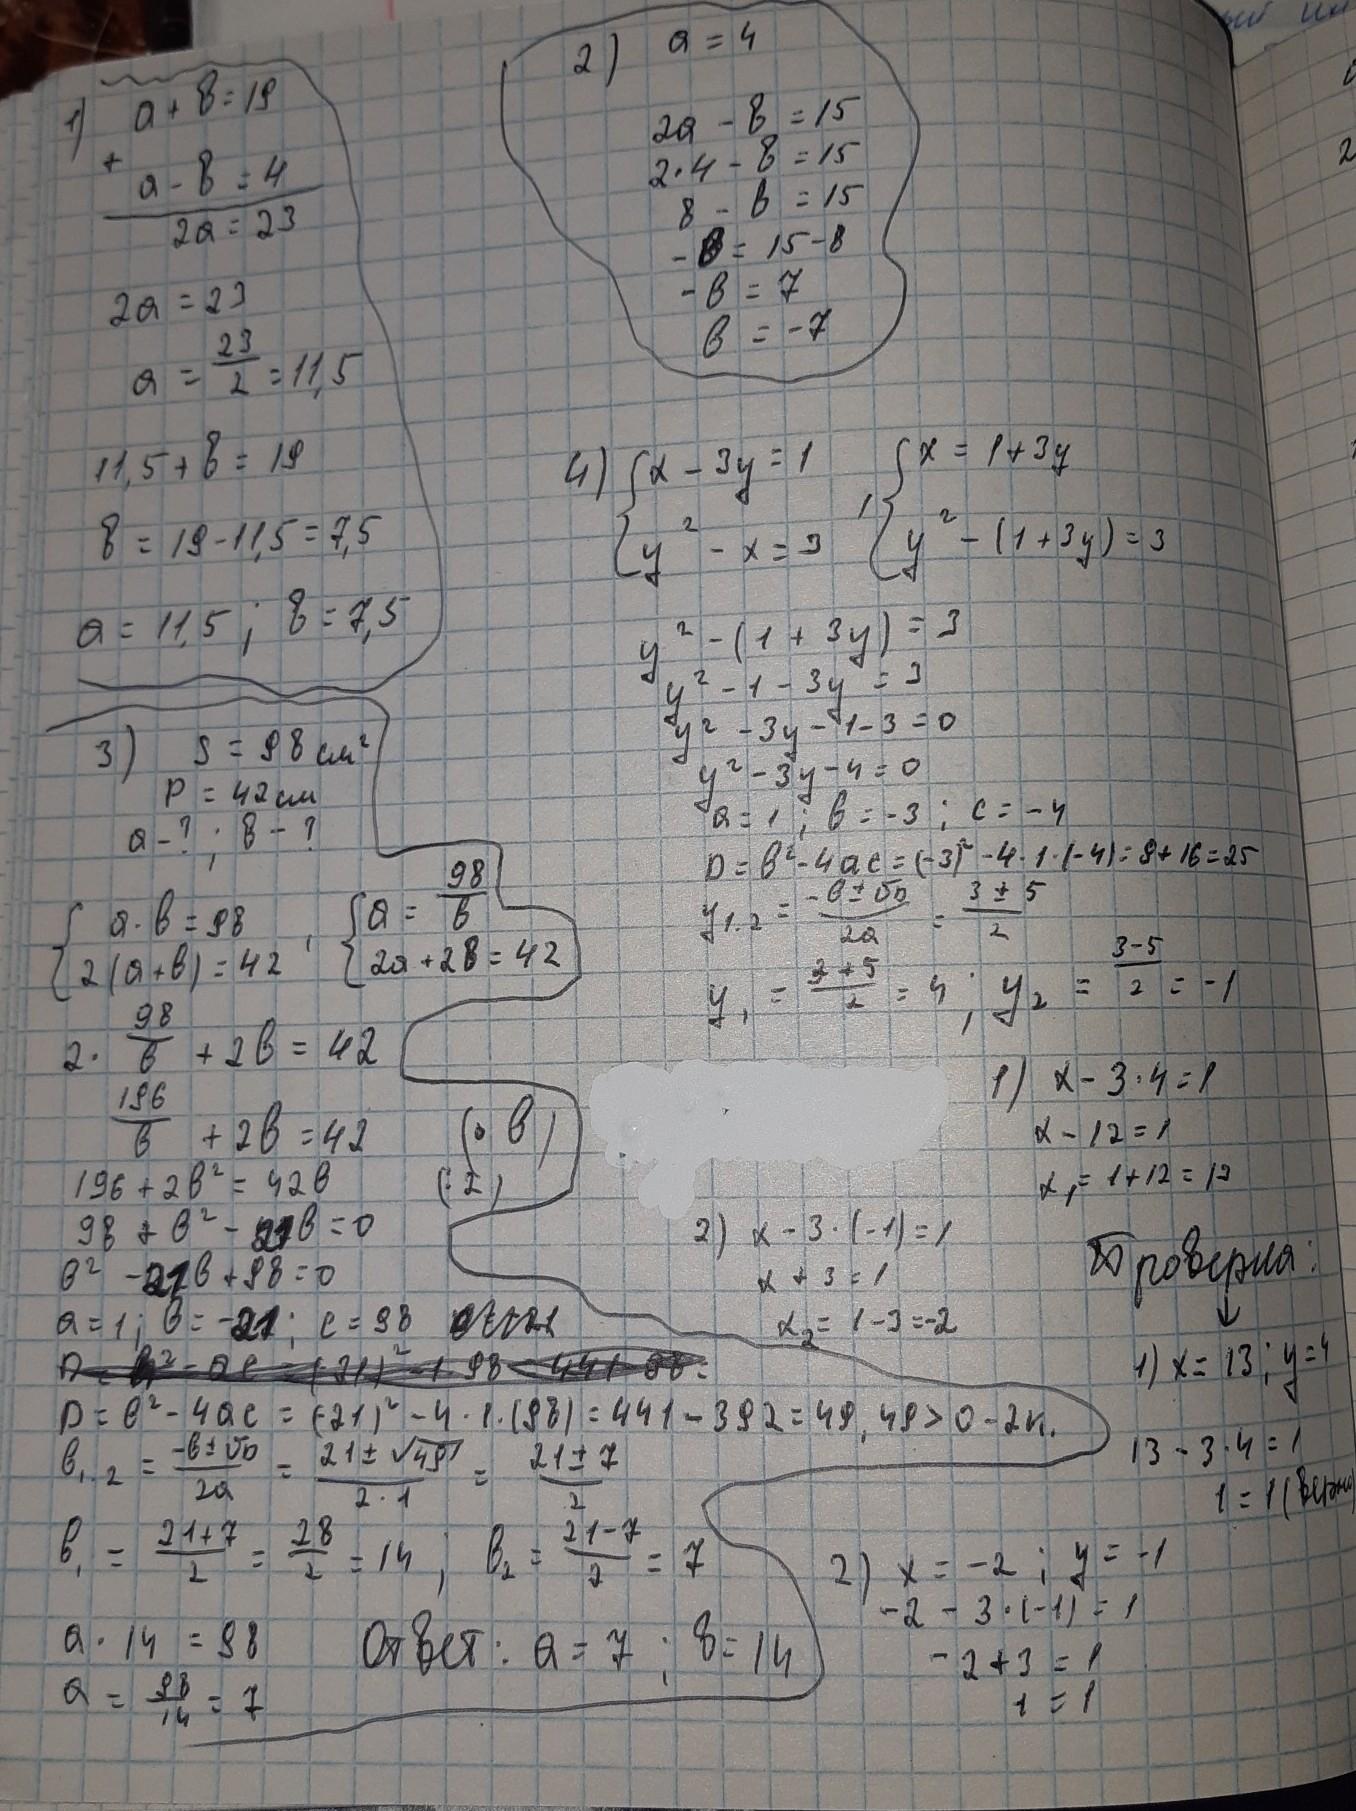 1) a + b = 19
+ a - b = 4
2a = 23
2a = 23
a = 23/2 = 11,5
11,5 + b = 19
b = 19 - 11,5 = 7,5
a = 11,5 ; b = 7,5
2) a = 4
2a - b = 15
2·4 - b = 15
8 - b = 15
-b = 15-8
-b = 7
b = -7
3) S = 98 см²
P = 42 см
a - ? ; b - ?
{ a·b = 98 , { a = 98/b
{ 2(a+b) = 42 { 2a + 2b = 42
2· 98/b + 2b = 42
196/b + 2b = 42 (·b)
196 + 2b² = 42b (:2)
98 + b² - 21b = 0
b² - 21b + 98 = 0
a = 1; b = -21; c = 98
D = b² - 4ac = (-21)² - 4·1·(98) = 441 - 392 = 49, 49 > 0 - 2к.
b1,2 = -b±√D/2a = 21±√49/2·1 = 21±7/2
b1 = 21+7/2 = 28/2 = 14 ; b2 = 21-7/2 = 7
a·14 = 98
a = 98/14 = 7
Ответ: a = 7 ; b = 14
4) { x - 3y = 1 , { x = 1+3y
{ y² - x = 3 { y² - (1+3y) = 3
y² - (1 + 3y) = 3
y² - 1 - 3y = 3
y² - 3y - 1 - 3 = 0
y² - 3y - 4 = 0
a = 1 ; b = -3 ; c = -4
D = b² - 4ac = (-3)² - 4·1·(-4) = 9 + 16 = 25
y1.2 = -b±√D/2a = 3±5/2
y1 = 3+5/2 = 4 ; y2 = 3-5/2 = -1
1) x - 3·4 = 1
x - 12 = 1
x1 = 1+12 = 13
2) x - 3·(-1) = 1
x + 3 = 1
x2 = 1-3 = -2
Проверка:
1) x = 13 ; y = 4
13 - 3·4 = 1
1 = 1 (верно)
2) x = -2 ; y = -1
-2 - 3·(-1) = 1
-2+3 = 1
1 = 1